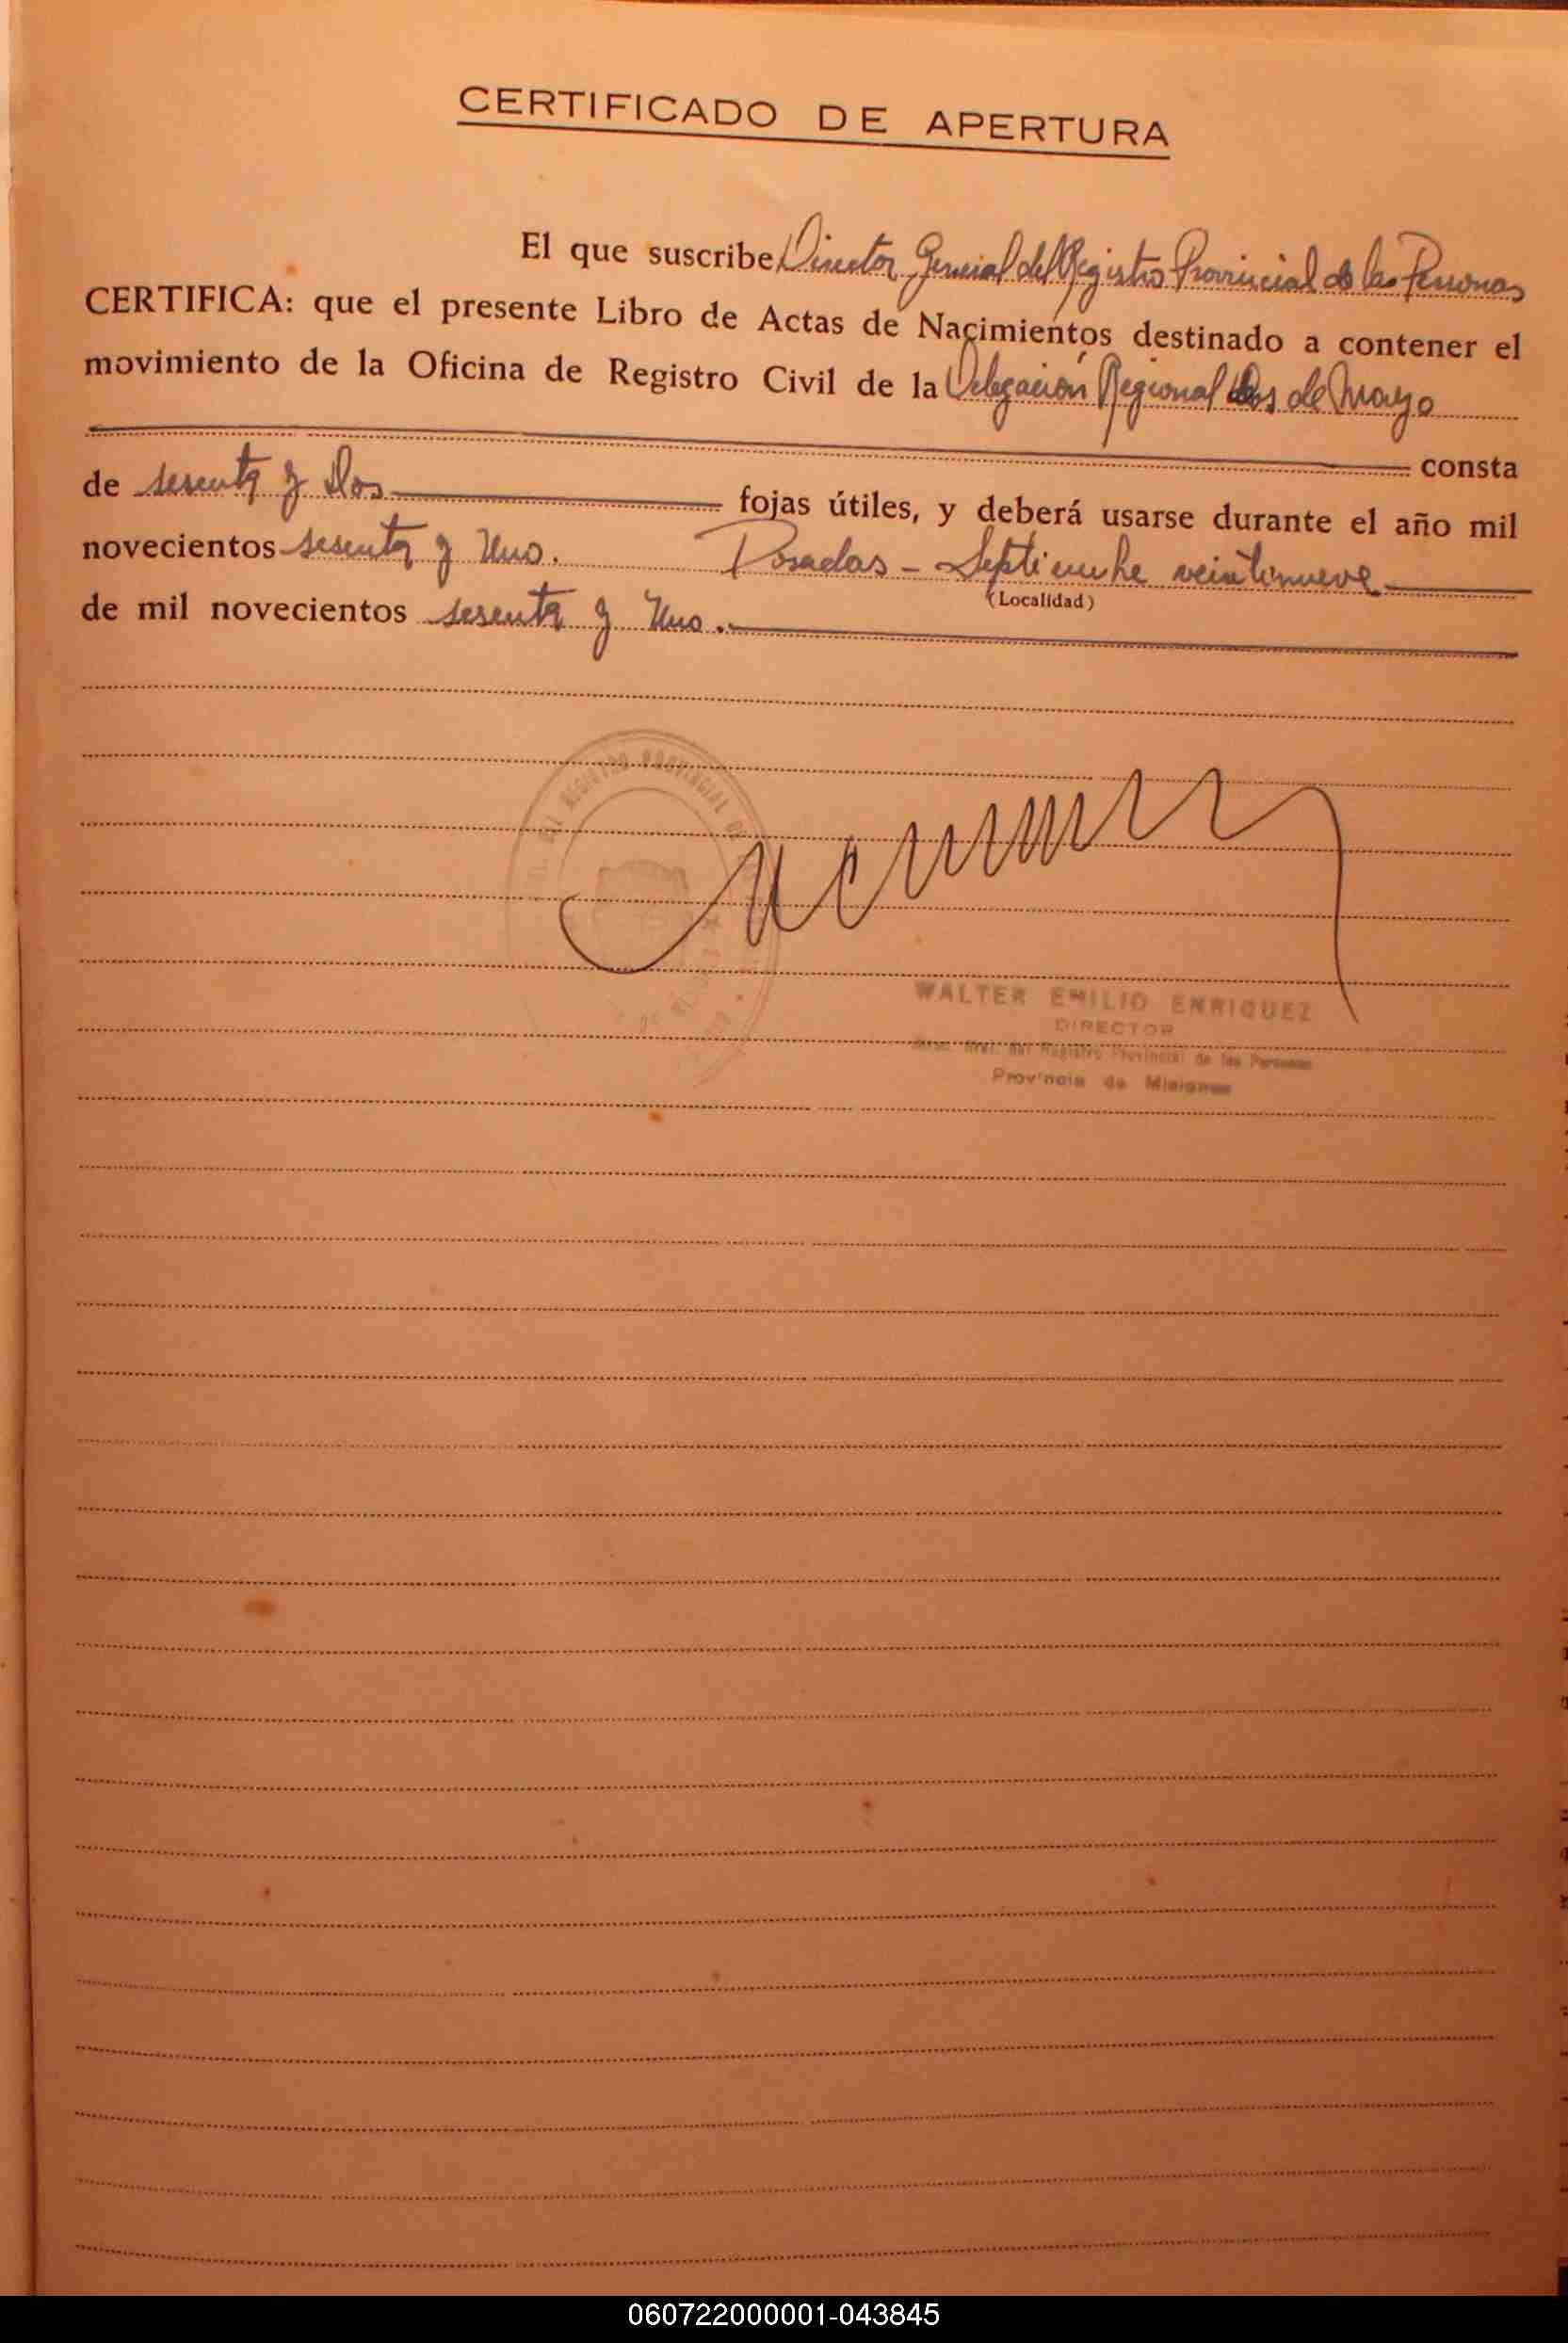 CERTIFICADO DE APERTURA
El que suscribe Director General del Registro Provincial de las Personas
CERTIFICA: que el presente Libro de Actas de Nacimientos destinado a contener el
movimiento de la Oficina de Registro Civil de la Delegación Regional Dos de Mayo
consta
de sesenta y Dos fojas útiles, y deberá usarse durante el año mil
novecientos sesenta y Uno. Posadas - Septiembre veintinueve
(Localidad)
de mil novecientos sesenta y Uno.
REGISTRO PROVINCIAL DE
WALTER EMILIO ENRIQUEZ
DIRECTOR
Direc. Gral. del Registro Provincial de las Personas
Provincia de Misiones
060722000001-043845